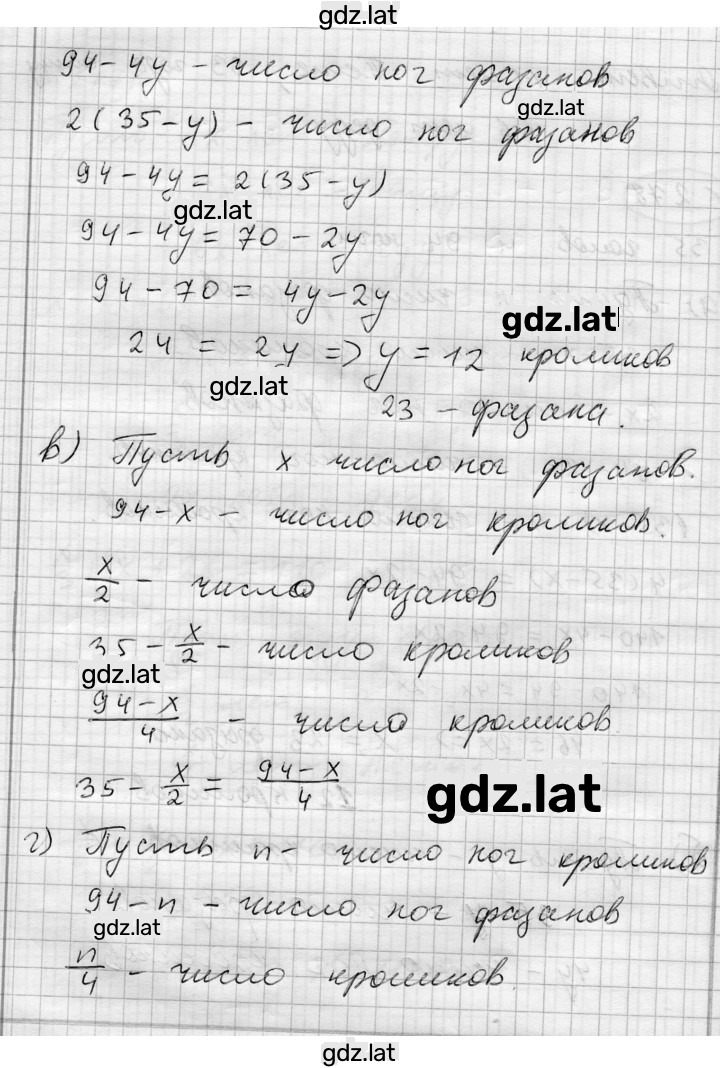 gdz.lat
94-4y - число ног фазанов
gdz.lat
2(35-y) - число ног фазанов
94-4y = 2(35-y)
gdz.lat
94-4y = 70-2y
94-70 = 4y-2y
gdz.lat
24 = 2y => y = 12 кроликов
gdz.lat
23 - фазана.
в) Пусть x число ног фазанов.
94-x - число ног кроликов.
x/2 - число фазанов
35 - x/2 - число кроликов
gdz.lat
(94-x)/4 - число кроликов
35 - x/2 = (94-x)/4
gdz.lat
г) Пусть n - число ног кроликов
94-n - число ног фазанов
gdz.lat
n/4 - число кроликов.
gdz.lat